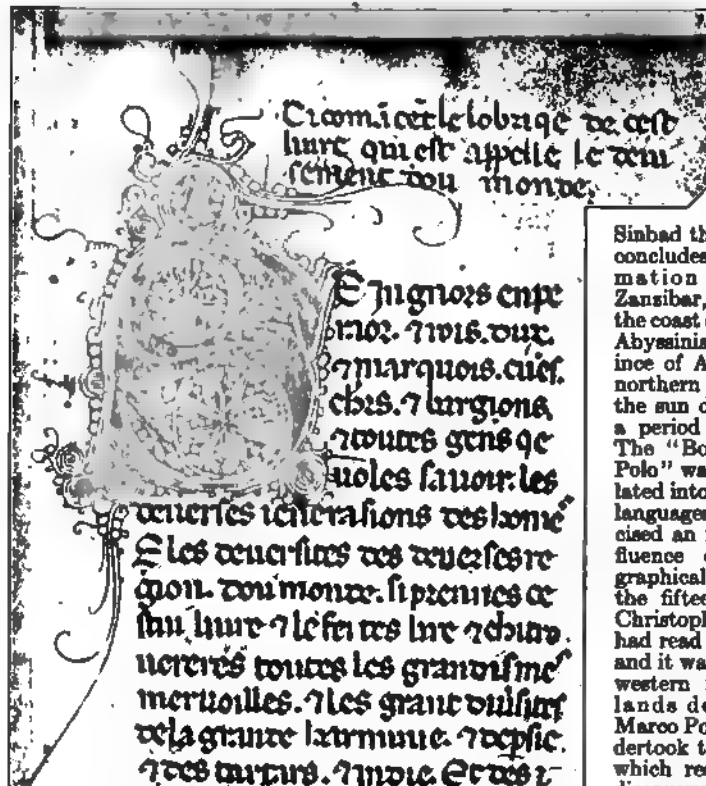 Ci com̄cēt le lobriqe de cest
liure qui est appelle le deui
sement dou monde.
Eingnors enpe
rior. ⁊ rois. dux.
⁊ marquois. cuēs.
chrs. ⁊ burgions.
⁊ toutes gens qe
uoles sauoir. les
deuerses ienerasions des home
E les deuersites des deuerses re
gion. dou monde. si prennes ce
stui liure ⁊ le feites lire ⁊ chi tro
ueres toutes les grandisme
meruoilles. ⁊ les grant diuersites
de la grande harminie. ⁊ de psie.
⁊ des tartars. ⁊ indie. Et des
Sinbad th
concludes
mation
Zansibar,
the coast o
Abyssinia
ince of A
northern
the sun d
a period
The "Bo
Polo" wa
lated into
languages
cised an i
fluence o
graphical
the fiftee
Christoph
had read
and it wa
western
lands de
Marco Po
dertook t
which re